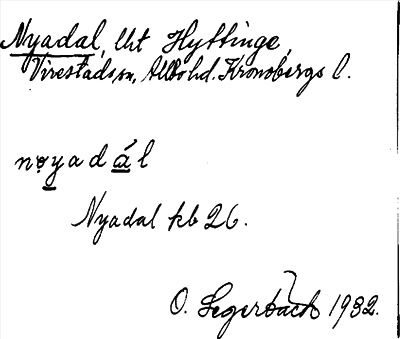 Nyadal, lht Hyttinge,
Virestads sn, Allbo hd. Kronobergs l.
nọyadál
Nyadal kb 26.
O. Segerback 1932.